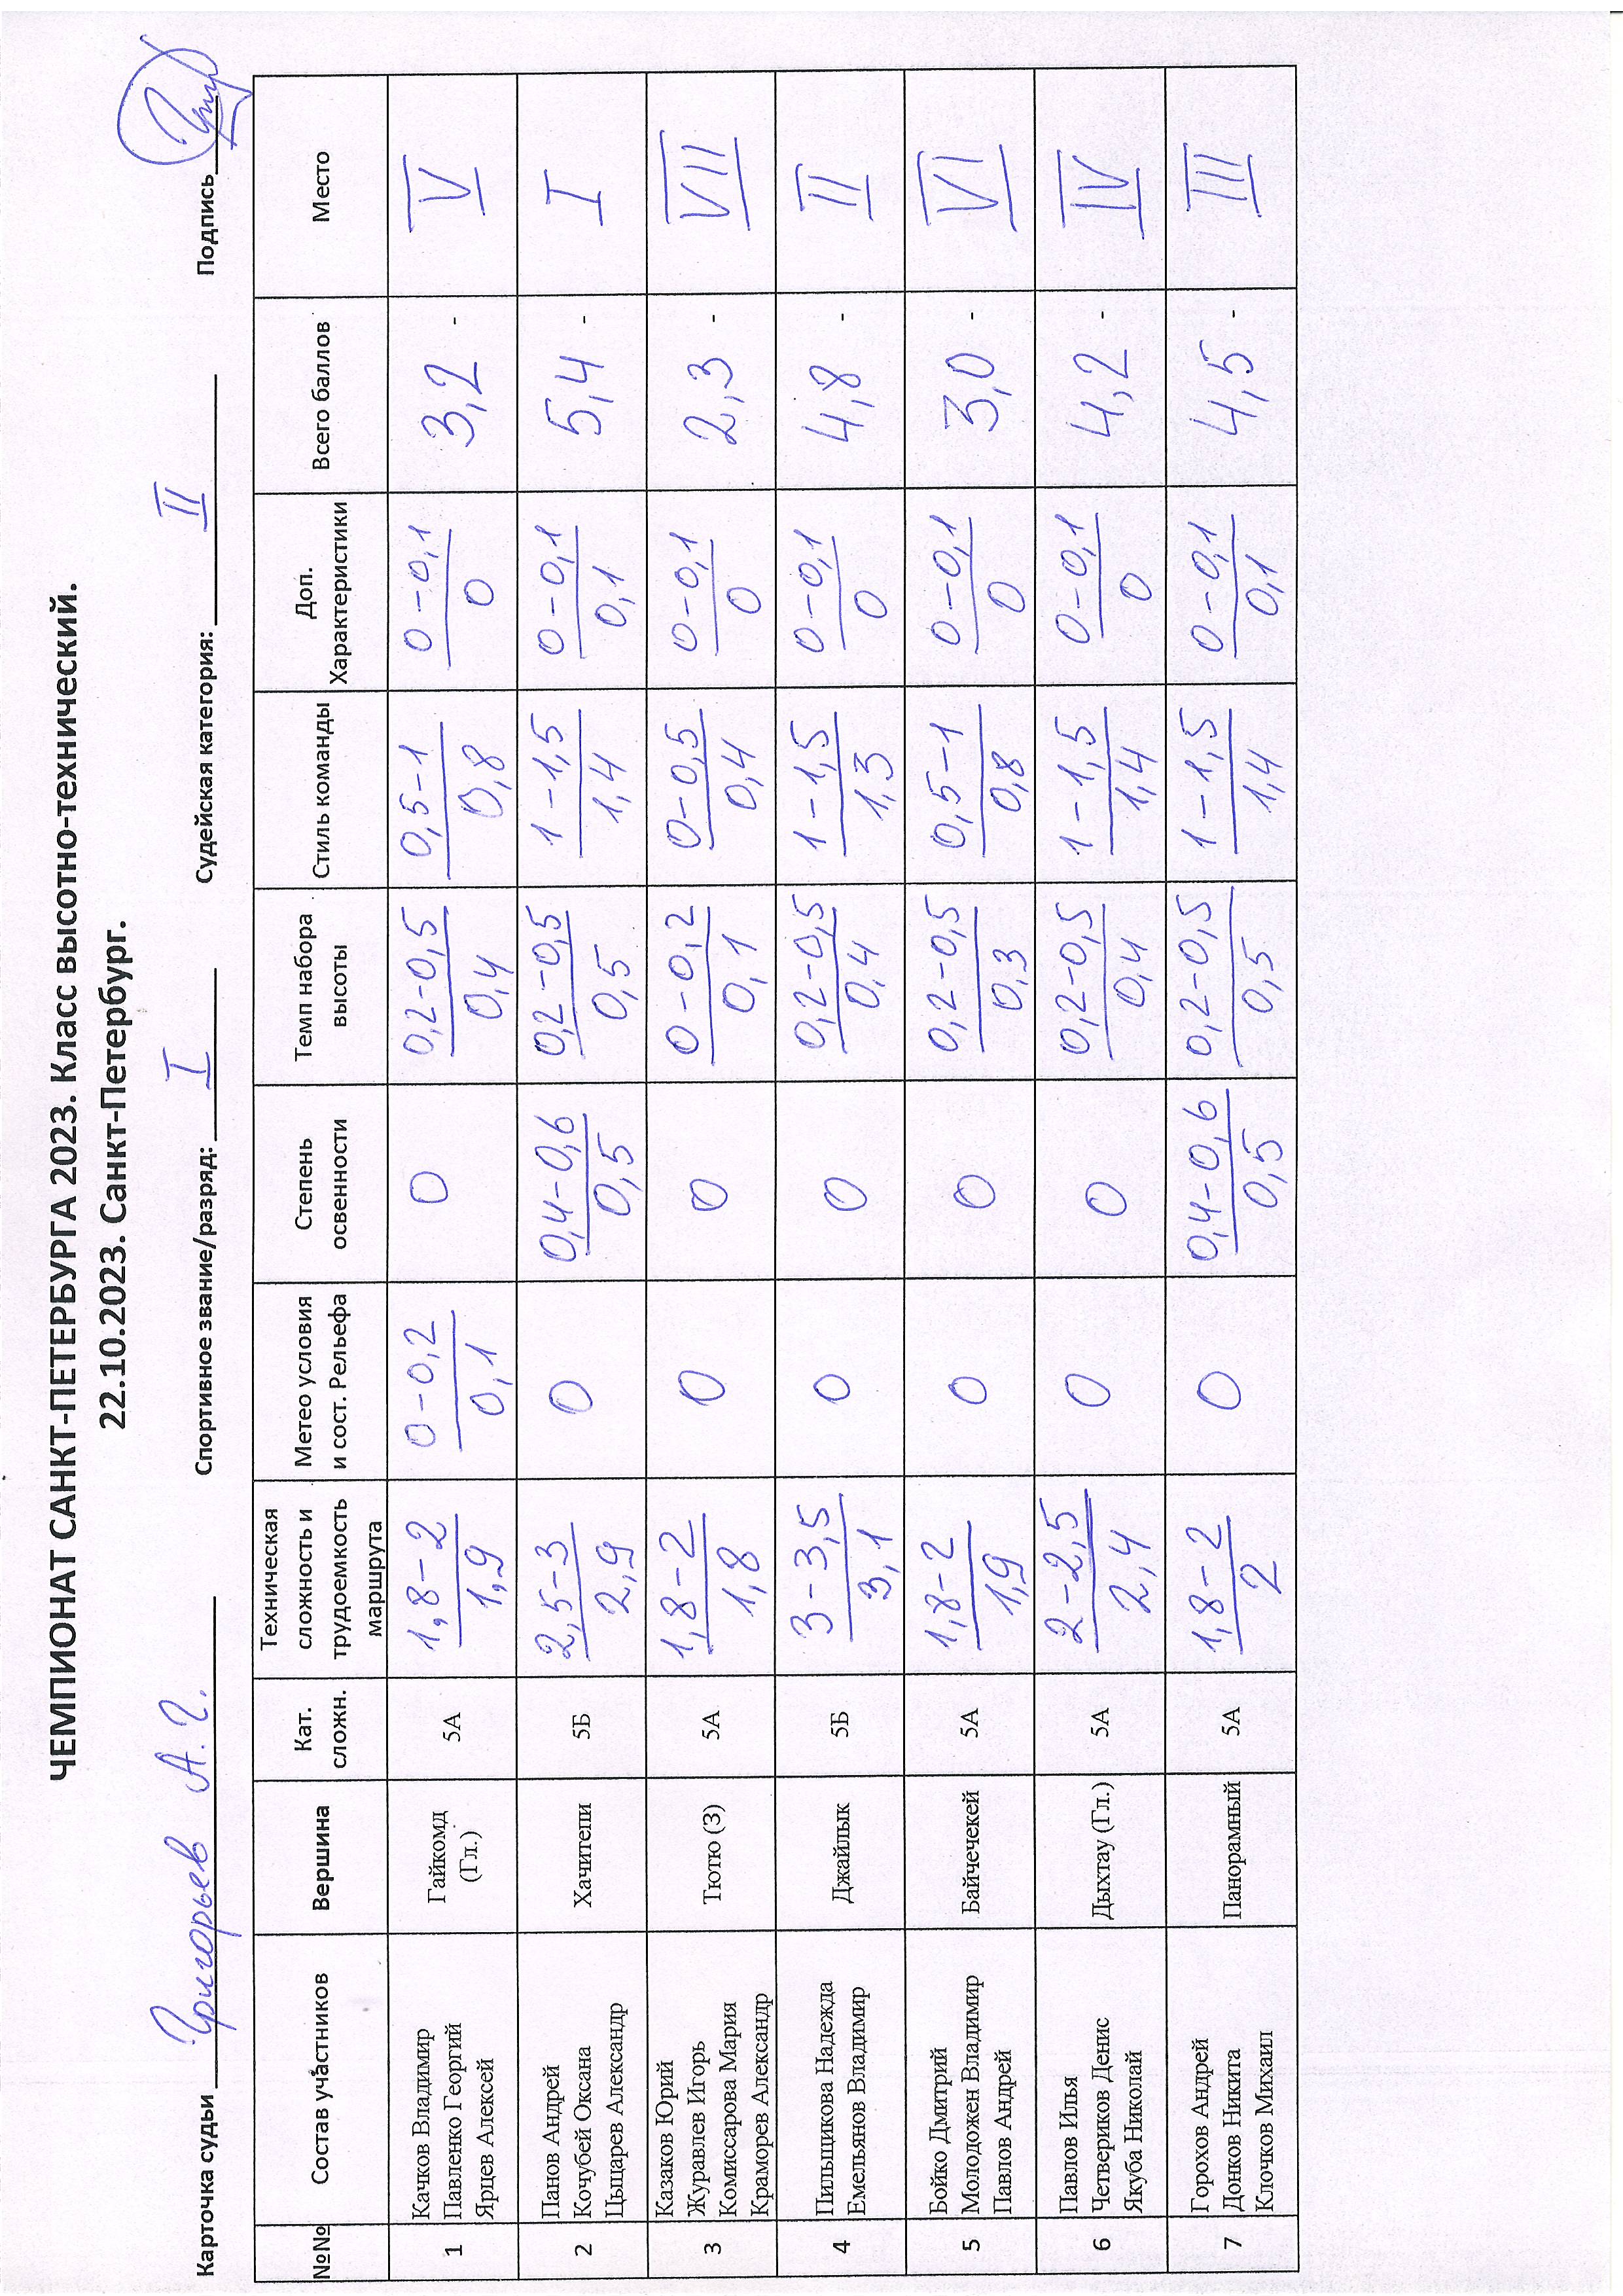 ЧЕМПИОНАТ САНКТ-ПЕТЕРБУРГА 2023. Класс высотно-технический.
22.10.2023. Санкт-Петербург.
Карточка судьи Григорьев А.Г. Спортивное звание/разряд: I Судейская категория: II Подпись
№№ Состав участников Вершина Кат. сложн. Техническая сложность и трудоемкость маршрута Метео условия и сост. Рельефа Степень освенности Темп набора высоты Стиль команды Доп. Характеристики Всего баллов Место
1 Качков Владимир Гайкомд (Гл.) 5А 1,8-2 0-0,2 0 0,2-0,5 0,5-1 0-0,1 3,2 - V
Павленко Георгий 1,9 0,1 0,4 0,8 0
Ярцев Алексей
2 Панов Андрей Хачитепи 5Б 2,5-3 0 0,4-0,6 0,2-0,5 1-1,5 0-0,1 5,4 - I
Кочубей Оксана 2,9 0,5 0,5 1,4 0,1
Цыцарев Александр
3 Казаков Юрий Тютю (З) 5А 1,8-2 0 0 0-0,2 0-0,5 0-0,1 2,3 - VII
Журавлев Игорь 1,8 0,1 0,4 0
Комиссарова Мария
Краморев Александр
4 Пильщикова Надежда Джайлык 5Б 3-3,5 0 0 0,2-0,5 1-1,5 0-0,1 4,8 - II
Емельянов Владимир 3,1 0,4 1,3 0
5 Бойко Дмитрий Байчечекей 5А 1,8-2 0 0 0,2-0,5 0,5-1 0-0,1 3,0 - VI
Молодожен Владимир 1,9 0,3 0,8 0
Павлов Андрей
6 Павлов Илья Дыхтау (Гл.) 5А 2-2,5 0 0 0,2-0,5 1-1,5 0-0,1 4,2 - IV
Четвериков Денис 2,4 0,4 1,4 0
Якуба Николай
7 Горохов Андрей Панорамный 5А 1,8-2 0 0,4-0,6 0,2-0,5 1-1,5 0-0,1 4,5 - III
Донков Никита 2 0,5 0,5 1,4 0,1
Клочков Михаил